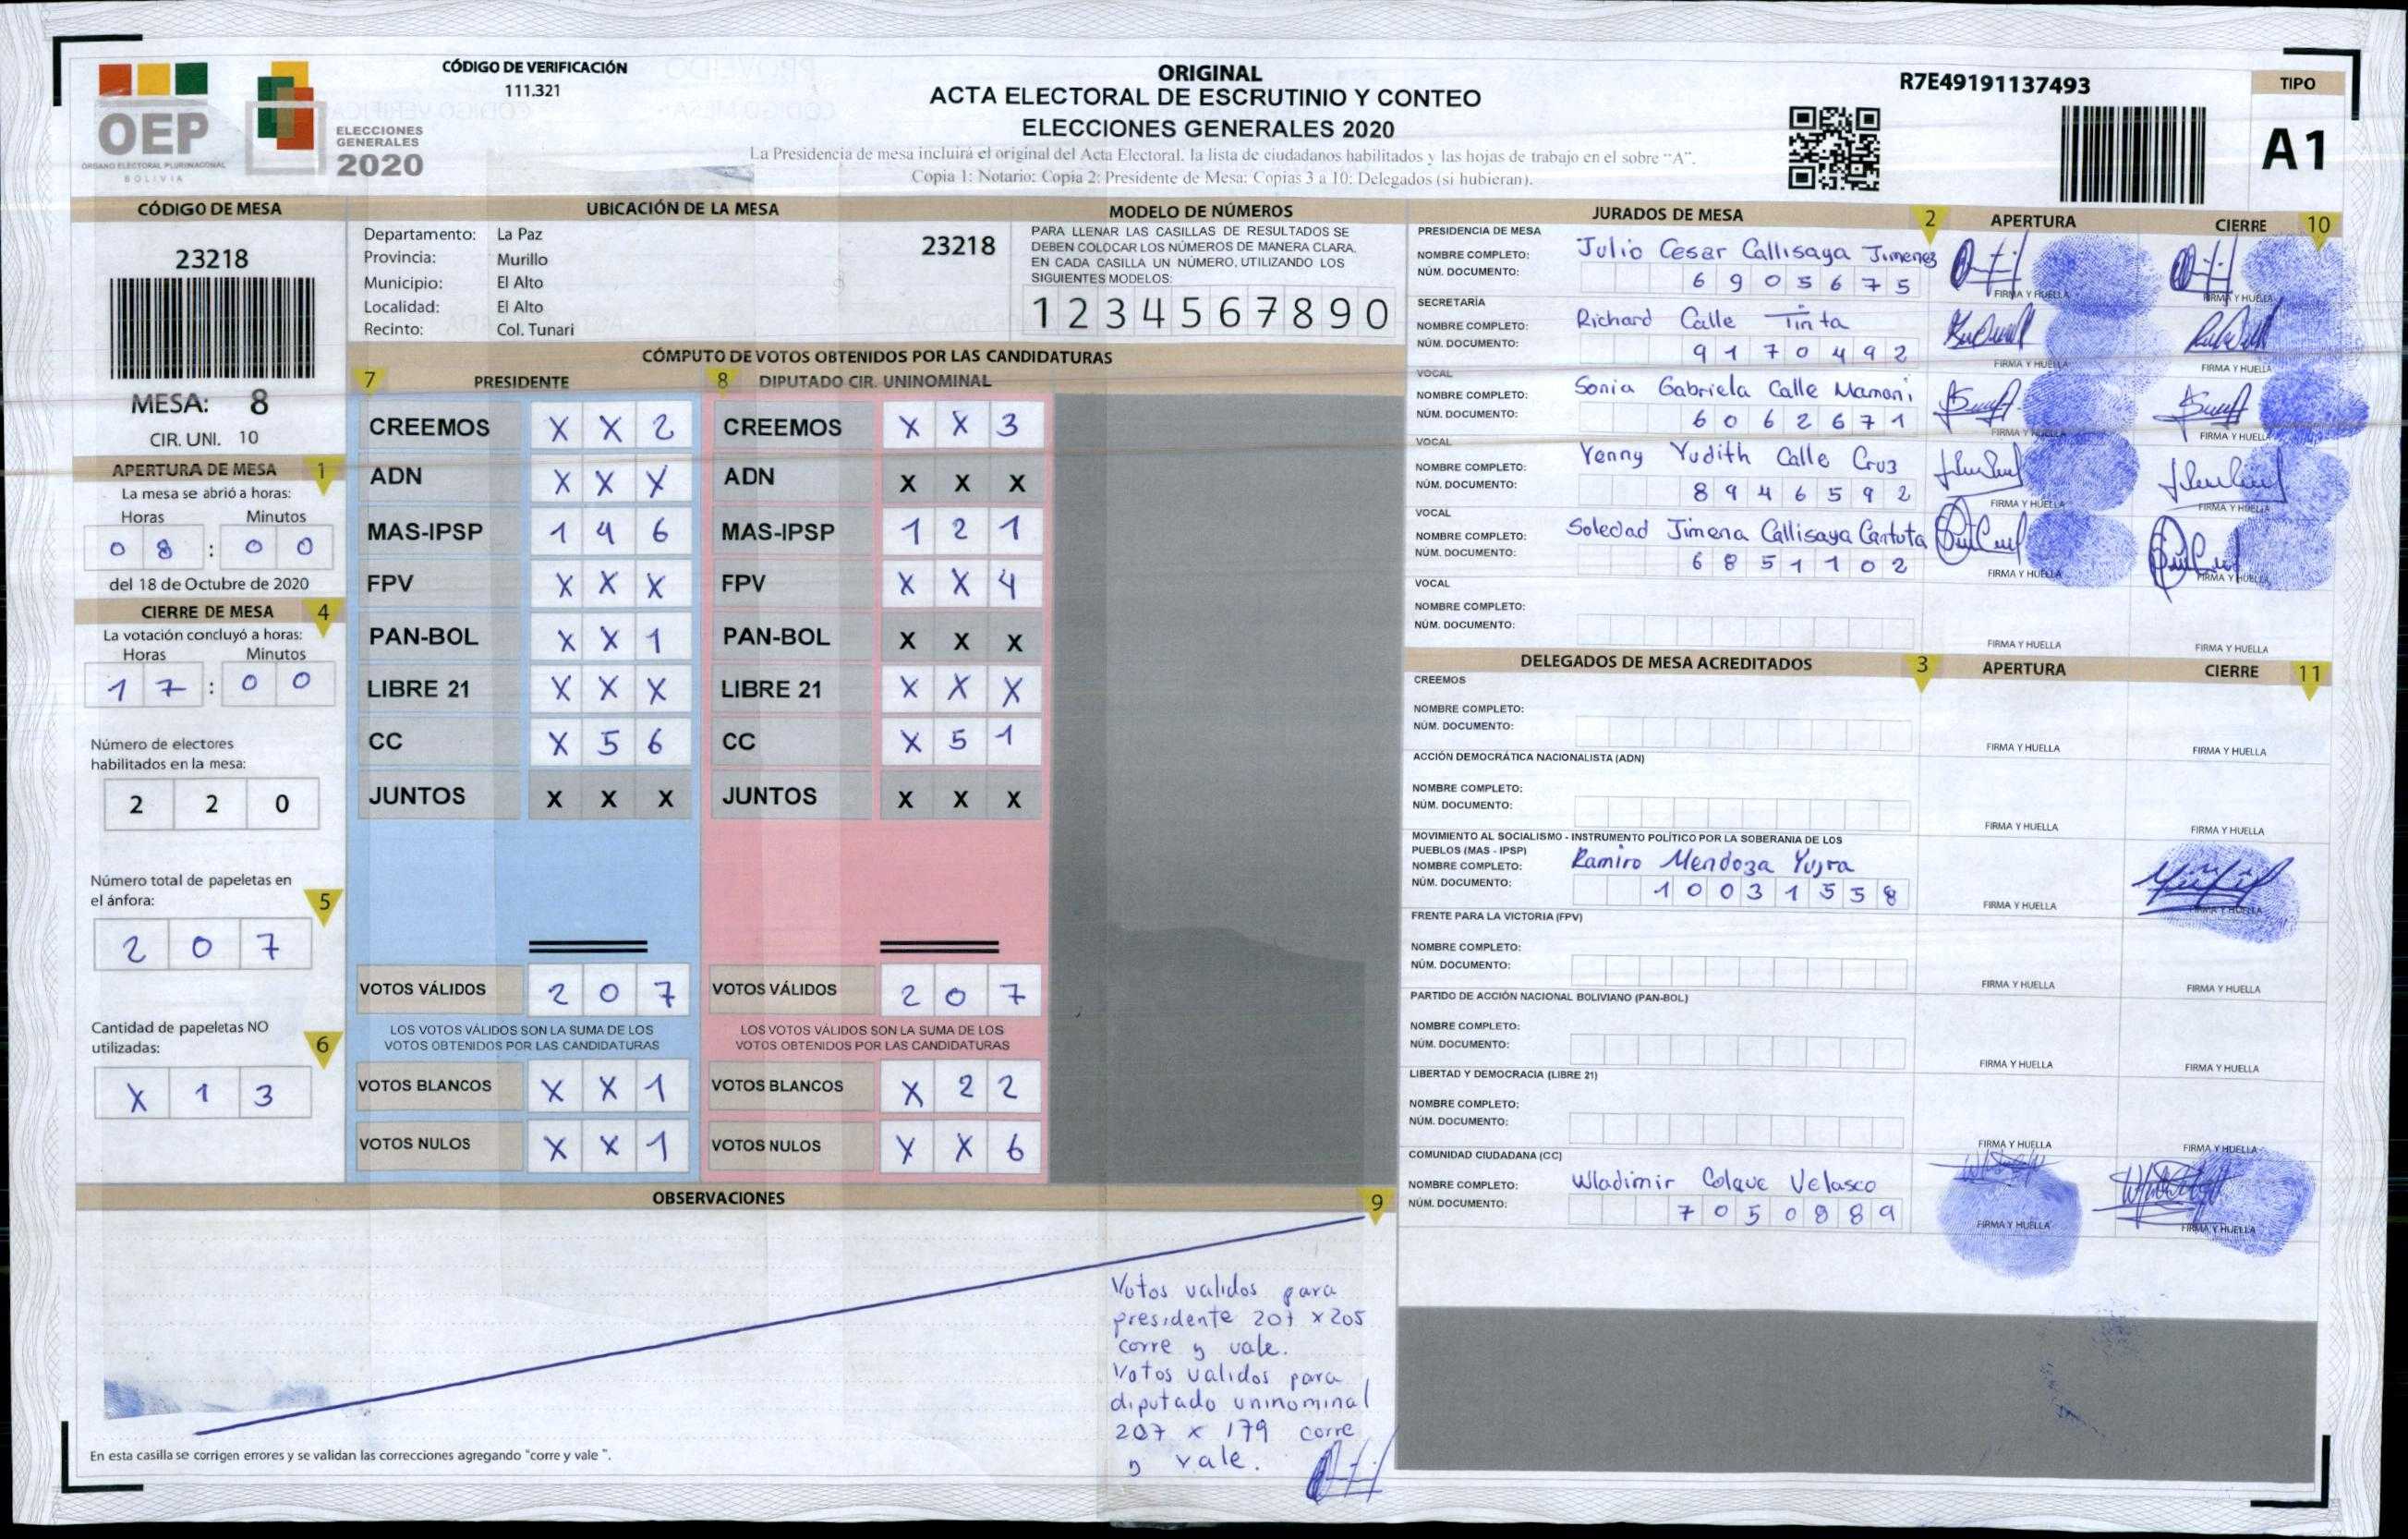 OEP
ÓRGANO ELECTORAL PLURINACIONAL
BOLIVIA
ELECCIONES
GENERALES
2020
CÓDIGO DE VERIFICACIÓN
111.321
ORIGINAL
ACTA ELECTORAL DE ESCRUTINIO Y CONTEO
ELECCIONES GENERALES 2020
La Presidencia de mesa incluirá el original del Acta Electoral, la lista de ciudadanos habilitados y las hojas de trabajo en el sobre "A".
Copia 1: Notario; Copia 2: Presidente de Mesa; Copias 3 a 10: Delegados (si hubieran).
R7E49191137493
TIPO
A1
CÓDIGO DE MESA
23218
MESA: 8
CIR. UNI. 10
APERTURA DE MESA 1
La mesa se abrió a horas:
Horas Minutos
0 8 : 0 0
del 18 de Octubre de 2020
CIERRE DE MESA 4
La votación concluyó a horas:
Horas Minutos
1 7 : 0 0
Número de electores
habilitados en la mesa:
2 2 0
Número total de papeletas en
el ánfora: 5
2 0 7
Cantidad de papeletas NO
utilizadas: 6
X 1 3
UBICACIÓN DE LA MESA
Departamento: La Paz
Provincia: Murillo
Municipio: El Alto
Localidad: El Alto
Recinto: Col. Tunari
23218
MODELO DE NÚMEROS
PARA LLENAR LAS CASILLAS DE RESULTADOS SE
DEBEN COLOCAR LOS NÚMEROS DE MANERA CLARA.
EN CADA CASILLA UN NÚMERO, UTILIZANDO LOS
SIGUIENTES MODELOS:
1 2 3 4 5 6 7 8 9 0
CÓMPUTO DE VOTOS OBTENIDOS POR LAS CANDIDATURAS
7 PRESIDENTE 8 DIPUTADO CIR. UNINOMINAL
CREEMOS X X 2 CREEMOS X X 3
ADN X X X ADN X X X
MAS-IPSP 1 4 6 MAS-IPSP 1 2 1
FPV X X X FPV X X 4
PAN-BOL X X 1 PAN-BOL X X X
LIBRE 21 X X X LIBRE 21 X X X
CC X 5 6 CC X 5 1
JUNTOS X X X JUNTOS X X X
VOTOS VÁLIDOS 2 0 7 VOTOS VÁLIDOS 2 0 7
LOS VOTOS VÁLIDOS SON LA SUMA DE LOS LOS VOTOS VÁLIDOS SON LA SUMA DE LOS
VOTOS OBTENIDOS POR LAS CANDIDATURAS VOTOS OBTENIDOS POR LAS CANDIDATURAS
VOTOS BLANCOS X X 1 VOTOS BLANCOS X 2 2
VOTOS NULOS X X 1 VOTOS NULOS X X 6
OBSERVACIONES 9
Votos validos para
presidente 207 x 205
corre y vale.
Votos validos para
diputado uninominal
207 x 179 corre
y vale.
En esta casilla se corrigen errores y se validan las correcciones agregando "corre y vale ".
JURADOS DE MESA 2 APERTURA CIERRE 10
PRESIDENCIA DE MESA
NOMBRE COMPLETO: Julio Cesar Callisaya Jimenez
NÚM. DOCUMENTO: 6 9 0 5 6 7 5
FIRMA Y HUELLA FIRMA Y HUELLA
SECRETARÍA
NOMBRE COMPLETO: Richard Calle Tinta
NÚM. DOCUMENTO: 9 1 7 0 4 9 2
FIRMA Y HUELLA FIRMA Y HUELLA
VOCAL
NOMBRE COMPLETO: Sonia Gabriela Calle Mamani
NÚM. DOCUMENTO: 6 0 6 2 6 7 1
FIRMA Y HUELLA FIRMA Y HUELLA
VOCAL
NOMBRE COMPLETO: Yenny Yudith Calle Cruz
NÚM. DOCUMENTO: 8 9 4 6 5 9 2
FIRMA Y HUELLA FIRMA Y HUELLA
VOCAL
NOMBRE COMPLETO: Soledad Jimena Callisaya Cantuta
NÚM. DOCUMENTO: 6 8 5 1 1 0 2
FIRMA Y HUELLA FIRMA Y HUELLA
VOCAL
NOMBRE COMPLETO:
NÚM. DOCUMENTO:
FIRMA Y HUELLA FIRMA Y HUELLA
DELEGADOS DE MESA ACREDITADOS 3 APERTURA CIERRE 11
CREEMOS
NOMBRE COMPLETO:
NÚM. DOCUMENTO:
FIRMA Y HUELLA FIRMA Y HUELLA
ACCIÓN DEMOCRÁTICA NACIONALISTA (ADN)
NOMBRE COMPLETO:
NÚM. DOCUMENTO:
FIRMA Y HUELLA FIRMA Y HUELLA
MOVIMIENTO AL SOCIALISMO - INSTRUMENTO POLÍTICO POR LA SOBERANIA DE LOS
PUEBLOS (MAS - IPSP)
NOMBRE COMPLETO: Ramiro Mendoza Yujra
NÚM. DOCUMENTO: 1 0 0 3 1 5 5 8
FIRMA Y HUELLA FIRMA Y HUELLA
FRENTE PARA LA VICTORIA (FPV)
NOMBRE COMPLETO:
NÚM. DOCUMENTO:
FIRMA Y HUELLA FIRMA Y HUELLA
PARTIDO DE ACCIÓN NACIONAL BOLIVIANO (PAN-BOL)
NOMBRE COMPLETO:
NÚM. DOCUMENTO:
FIRMA Y HUELLA FIRMA Y HUELLA
LIBERTAD Y DEMOCRACIA (LIBRE 21)
NOMBRE COMPLETO:
NÚM. DOCUMENTO:
FIRMA Y HUELLA FIRMA Y HUELLA
COMUNIDAD CIUDADANA (CC)
NOMBRE COMPLETO: Wladimir Colque Velasco
NÚM. DOCUMENTO: 7 0 5 0 8 8 9
FIRMA Y HUELLA FIRMA Y HUELLA